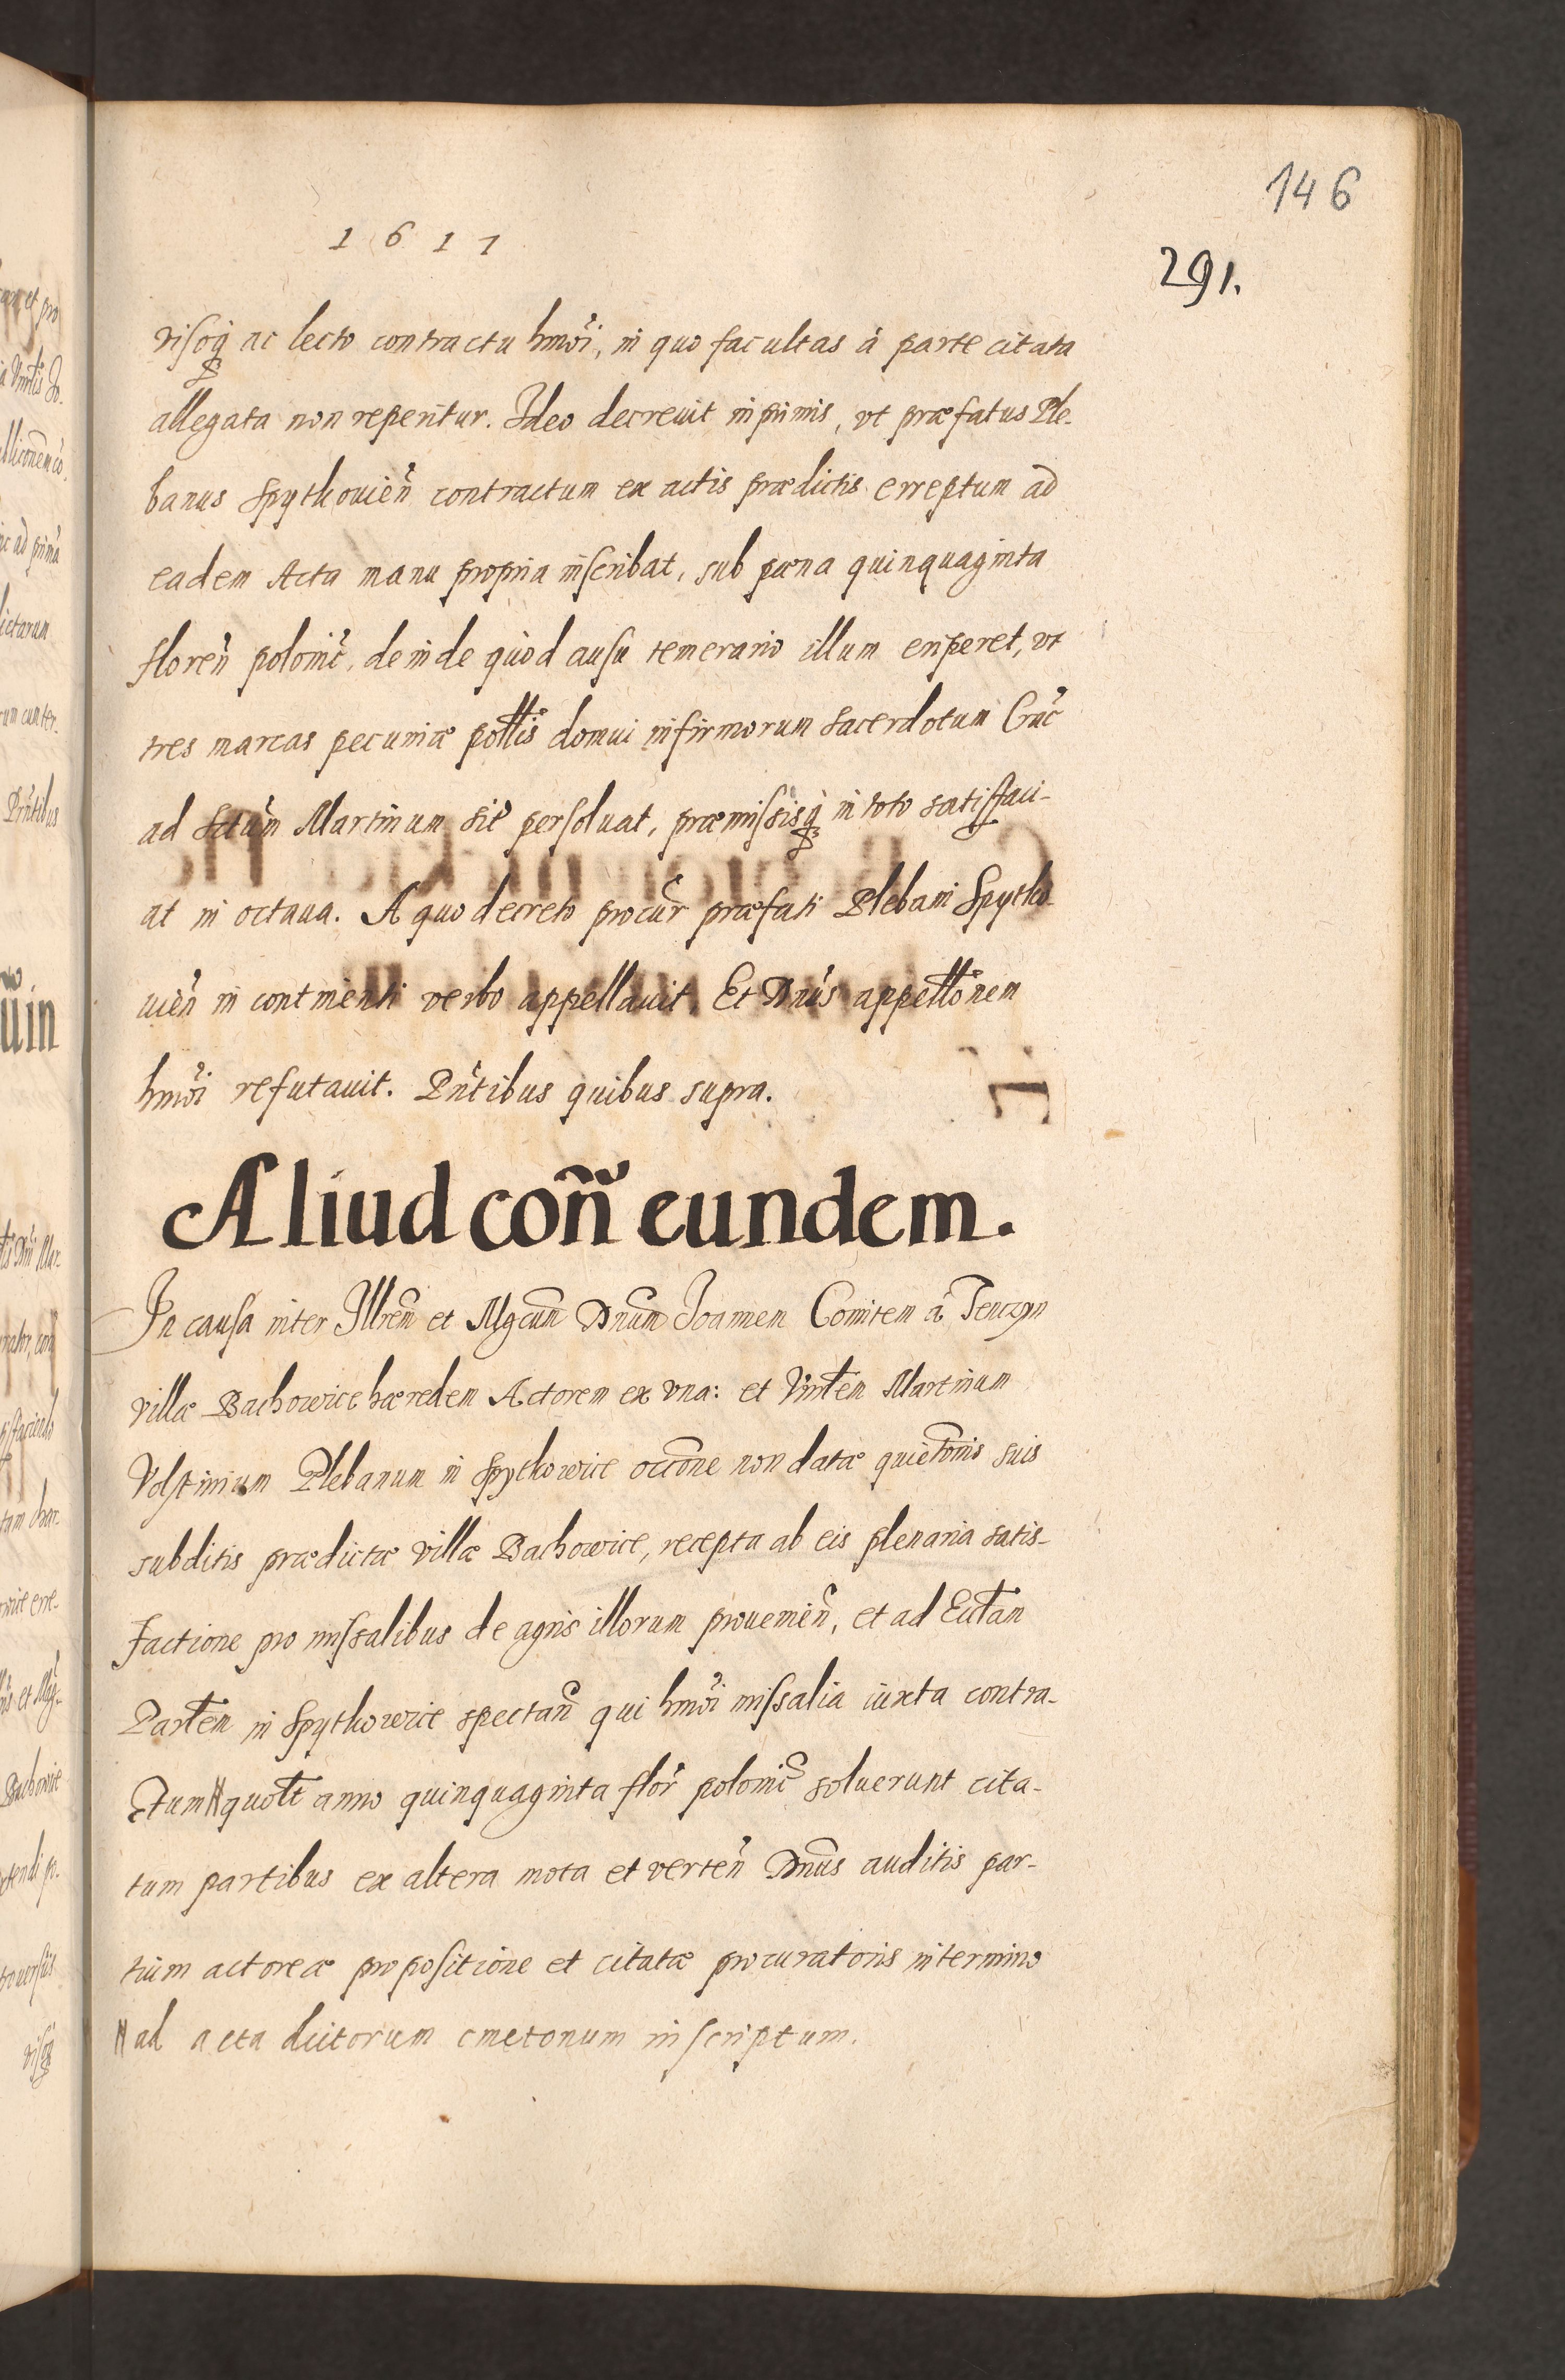 146
1617
291.
visoq₃ ac lecto contractu hmōi, in quo facultas à parte citata
allegata non reperitur. Ideo decrevit inprimis, vt præfatus Ple-
banus Spythouień contractum ex actis prædictis erreptum ad
eadem Acta manu propria inscribat, sub pœna quinquaginta
floreń polonić, deinde quòd ausu temerario illum eriperet, vt
tres marcas pecuniæ poltlis domui infirmorum Sacerdotum Crać
ad Sctum Martinum sitè persoluat, præmissisq₃ in toto satisfaci-
at in octaua. A quo decreto procur̃ præfati Plebani Spytko-
uień in continenti verbo appellauit. Et Dnus appelltonem
hmōi refutauit. Pntibus quibus supra.
Aliud con̄ eundem.
In causa inter Illrem et Mgcum Dnum Joannem Comitem à Tenczyn
villæ Bachowice hæredem Actorem ex vna: et Vnrtem Martinum
Volstinium Plebanum in Spythowice occōne non datæ quietonis suis
subditis prædictæ villæ Bachowice, recepta ab eis plenaria satis-
factione pro missalibus de agris illorum prouenień, et ad Ecctam
Partem in Spythowice spectań qui hmōi missalia iuxta contra-
ctum # quolt anno quinquaginta flor̃ polonić soluerunt cita-
tum partibus ex altera mota et verteń Dnus auditis par-
tium actoreæ propositione et citatæ procuratoris in termino
# ad acta dictorum cmetonum inscriptum.